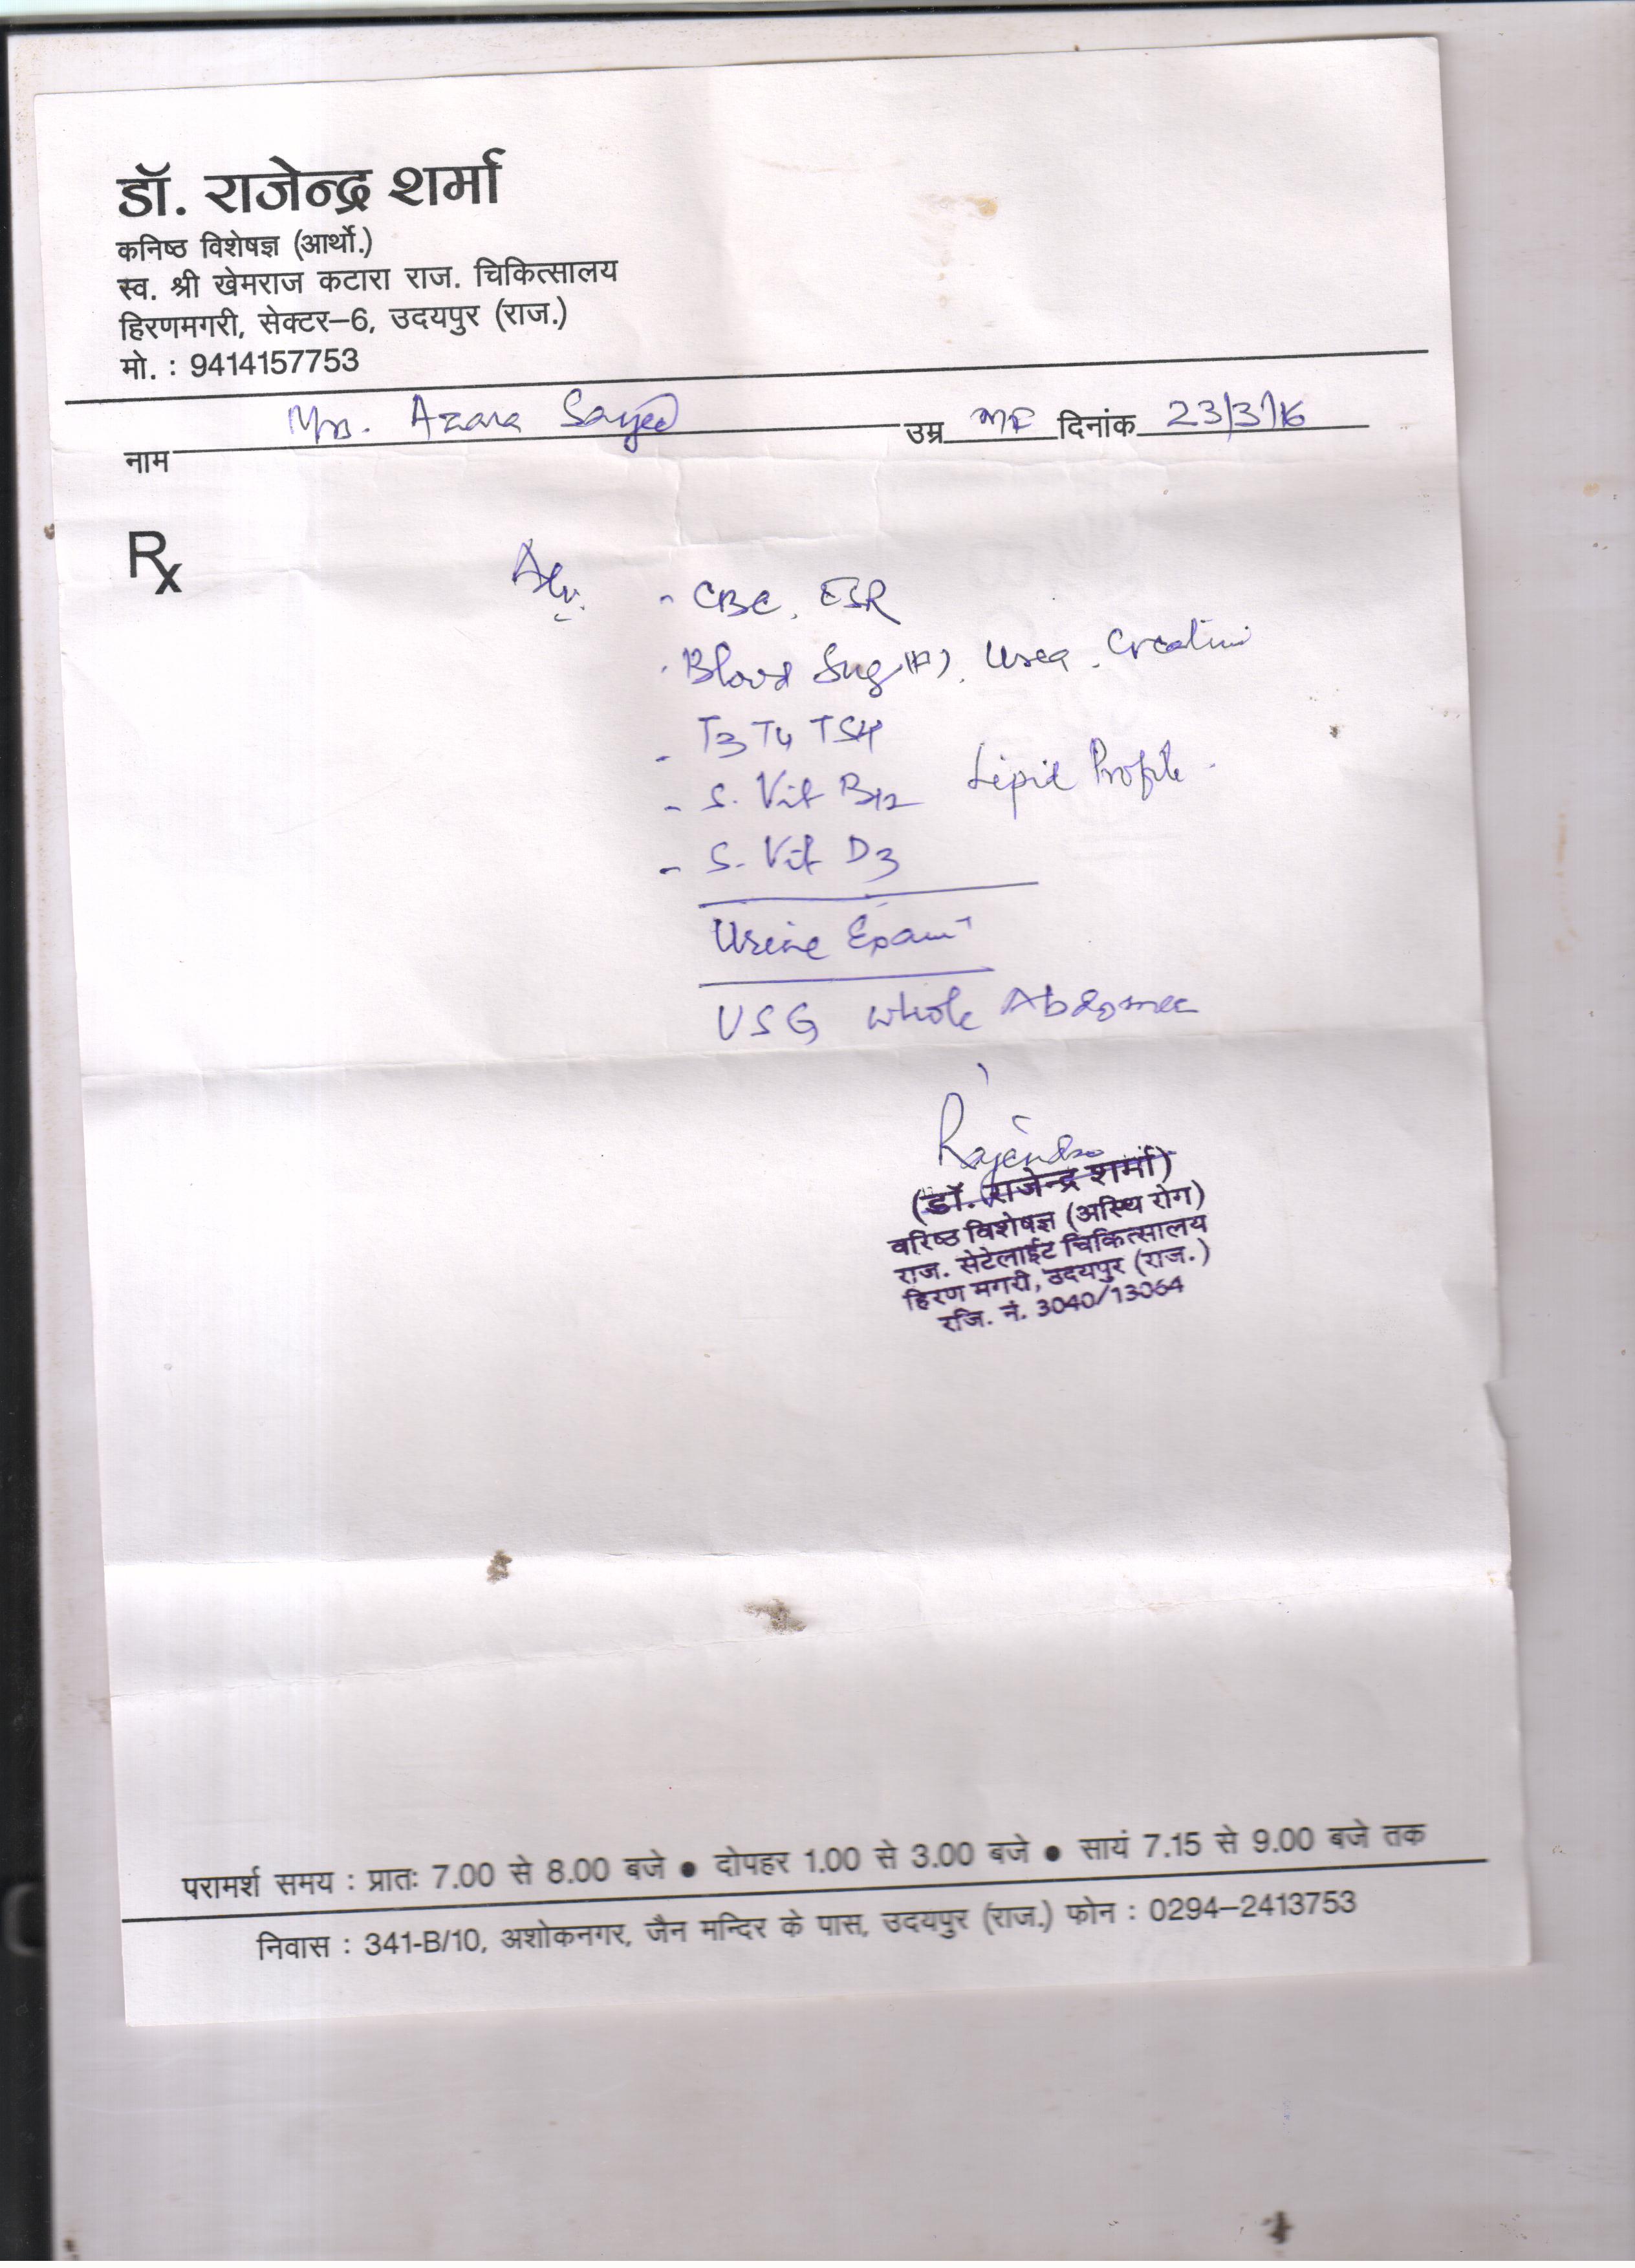 डॉ. राजेन्द्र शर्मा
कनिष्ठ विशेषज्ञ (आर्थो.)
स्व. श्री खेमराज कटारा राज. चिकित्सालय
हिरणमगरी, सेक्टर–6, उदयपुर (राज.)
मो. : 9414157753
नाम Mrs. Azara Sayed उम्र दिनांक 23/3/16
Rx
Adv. - CBC, ESR
- Blood Sug (F), Urea, Creatini
- T3 T4 TSH
- S. Vit B12 Lipid Profile.
- S. Vit D3
Urine Exam
USG Whole Abdomen
Rajendra
(डॉ. राजेन्द्र शर्मा)
वरिष्ठ विशेषज्ञ (अस्थि रोग)
राज. सेटेलाईट चिकित्सालय
हिरण मगरी, उदयपुर (राज.)
रजि. नं. 3040/13064
परामर्श समय : प्रातः 7.00 से 8.00 बजे ● दोपहर 1.00 से 3.00 बजे ● सायं 7.15 से 9.00 बजे तक
निवास : 341-B/10, अशोकनगर, जैन मन्दिर के पास, उदयपुर (राज.) फोन : 0294–2413753